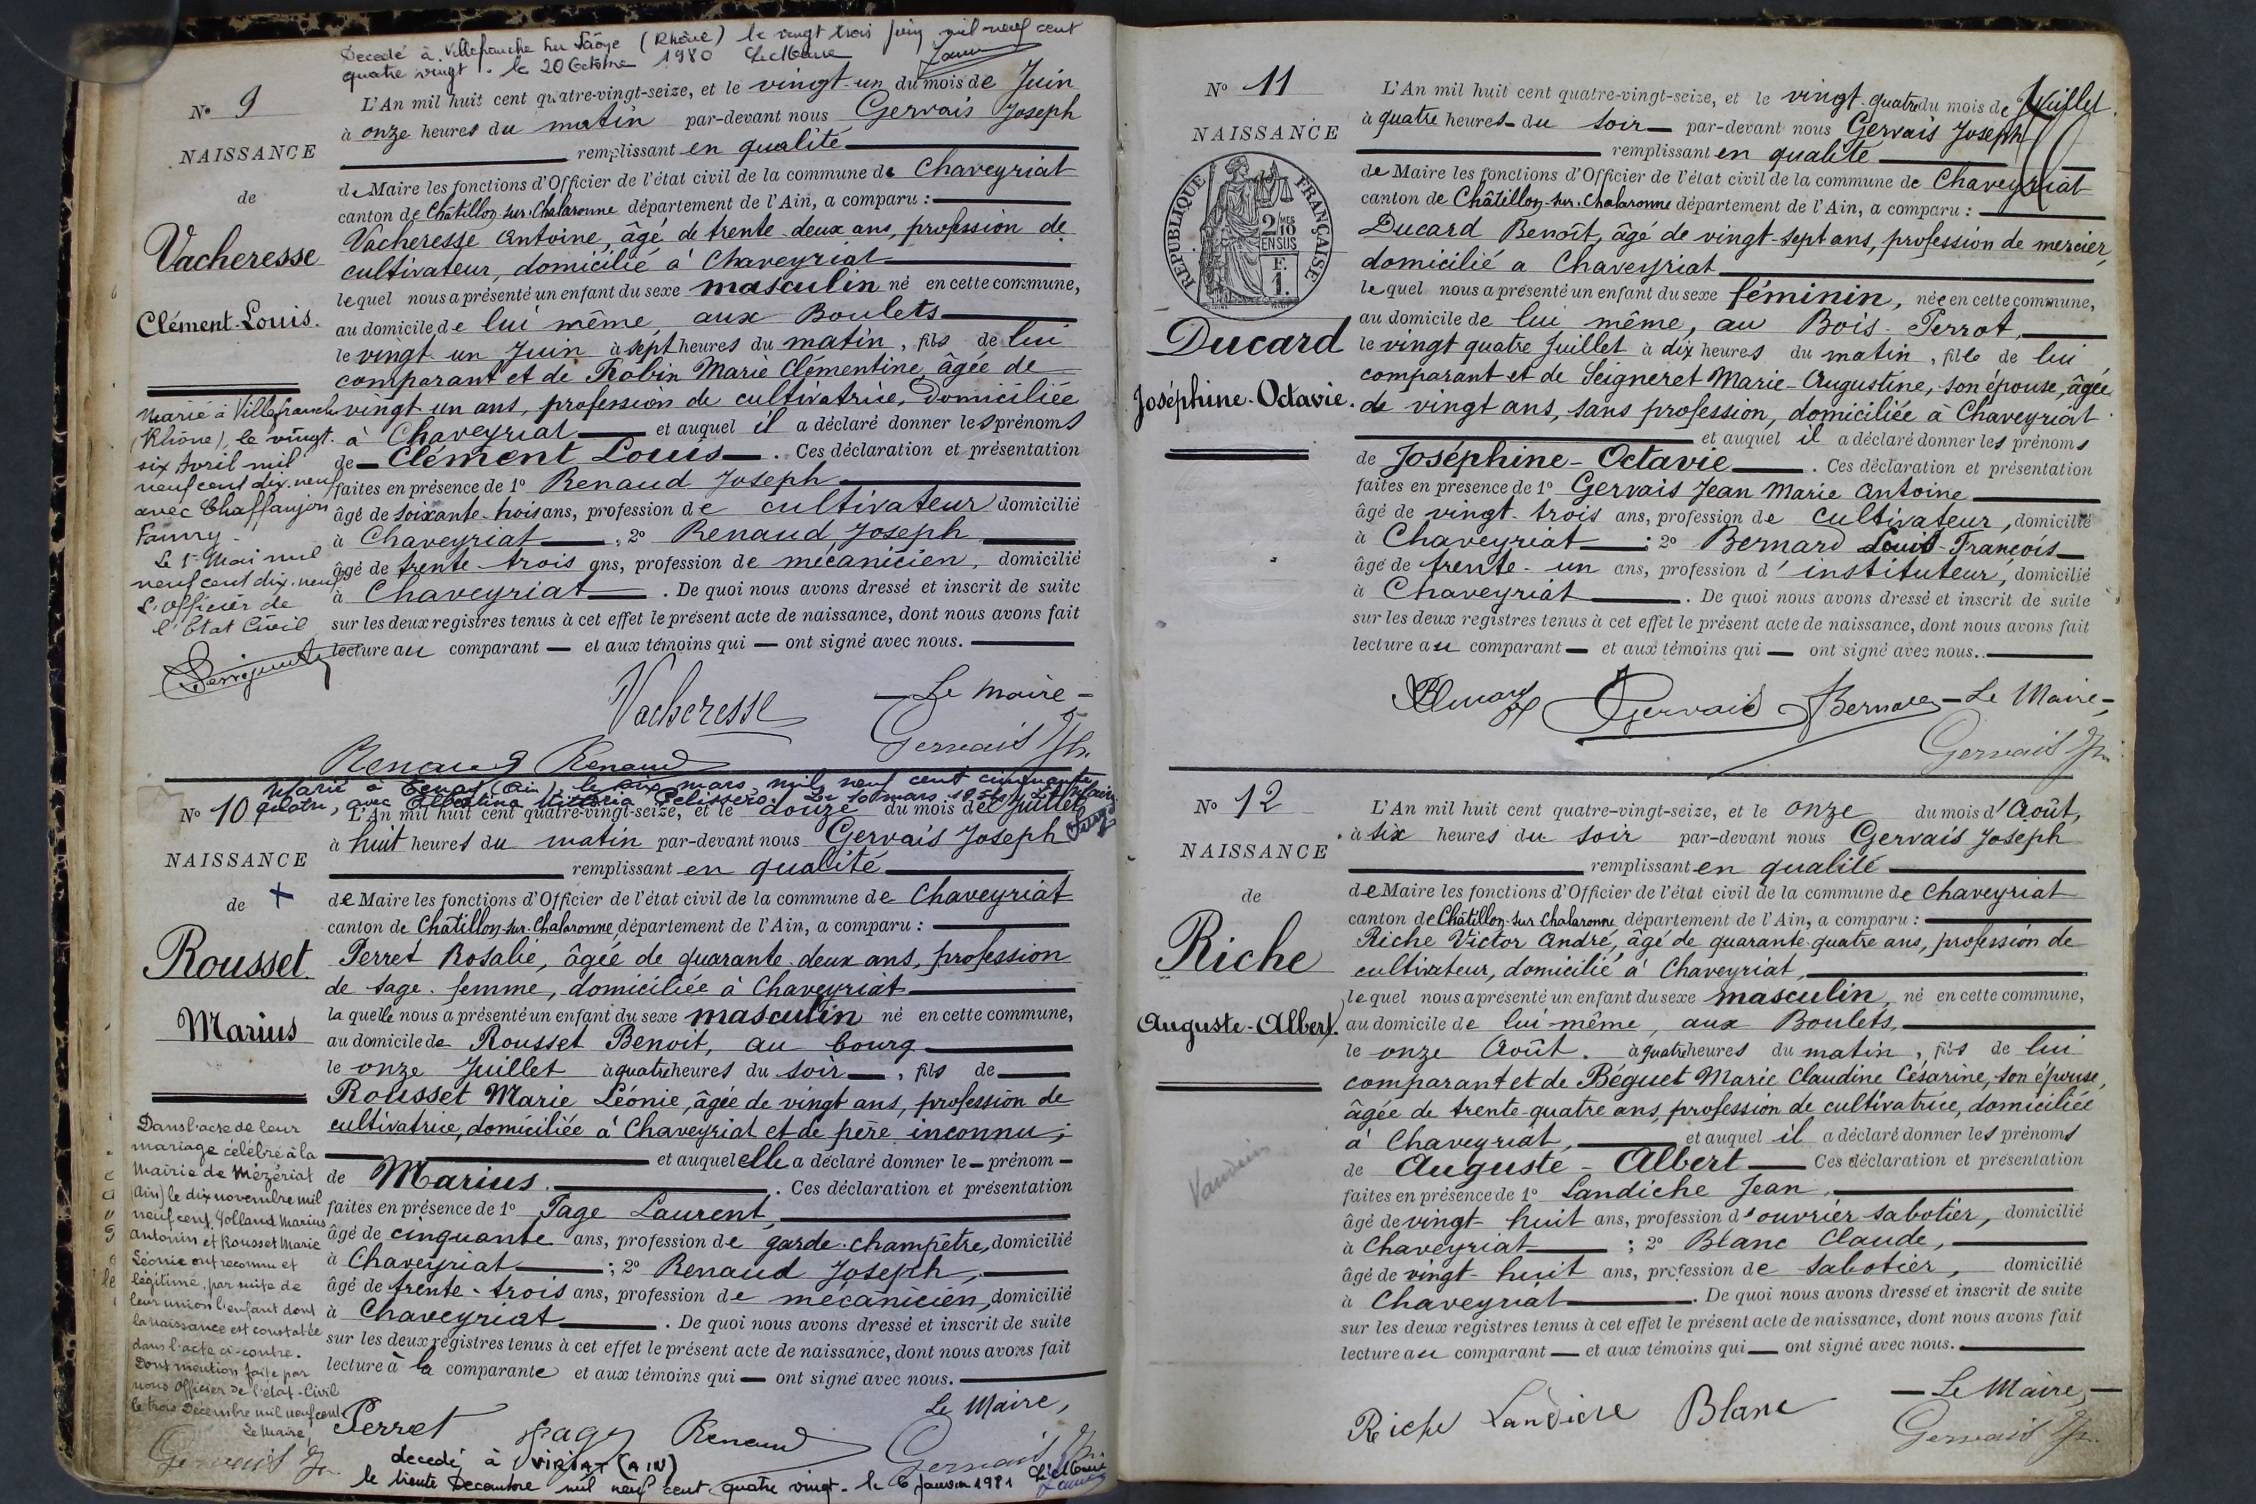 Decedé à Villefranche sur Saône (Rhône) le vingt trois juin mil neuf cent
quatre vingt. le 20 Octobre 1980 Le Maire
N° 9
NAISSANCE
de
Vacheresse
Clément-Louis.
L'An mil huit cent quatre-vingt-seize, et le vingt-un du mois de Juin
à onze heures du matin par-devant nous Gervais Joseph
remplissant en qualité
de Maire les fonctions d'Officier de l'état civil de la commune de Chaveyriat
canton de Châtillon-sur-Chalaronne département de l'Ain, a comparu :
Vacheresse Antoine, âgé de trente-deux ans, profession de
cultivateur, domicilié à Chaveyriat
lequel nous a présenté un enfant du sexe masculin né en cette commune,
au domicile de lui même, aux Boulets
le vingt un Juin à sept heures du matin, fils de lui
comparant et de Robin Marie Clémentine, âgée de
vingt-un ans, profession de cultivatrice, Domiciliée
à Chaveyriat et auquel il a déclaré donner les prénoms
de Clément Louis. Ces déclaration et présentation
faites en présence de 1° Renaud Joseph
âgé de soixante-trois ans, profession de cultivateur domicilié
à Chaveyriat ; 2° Renaud Joseph
âgé de trente-trois ans, profession de mécanicien, domicilié
à Chaveyriat. De quoi nous avons dressé et inscrit de suite
sur les deux registres tenus à cet effet le présent acte de naissance, dont nous avons fait
lecture au comparant et aux témoins qui ont signé avec nous.
Marié à Villefranche
(Rhône), le vingt-
six Avril mil
neuf cent dix-neuf
avec Chaffanjon
Fanny.
Le 1er Mai mil
neuf cent dix-neuf
L'officier de
l'Etat Civil
Vacheresse
Le Maire
Gervais Jh.
Renaud Renaud
Marié à Tenay (Ain), le six mars mil neuf cent cinquante
quatre, avec Albertina Vittoria Pelissero. Le 10 mars 1954. Le Maire
N° 10
NAISSANCE
de
Rousset
Marius
L'An mil huit cent quatre-vingt-seize, et le douze du mois de Juillet
à huit heures du matin par-devant nous Gervais Joseph
remplissant en qualité
de Maire les fonctions d'Officier de l'état civil de la commune de Chaveyriat
canton de Châtillon-sur-Chalaronne, département de l'Ain, a comparu :
Perret Rosalie, âgée de quarante-deux ans, profession
de sage-femme, domiciliée à Chaveyriat
laquelle nous a présenté un enfant du sexe masculin né en cette commune,
au domicile de Rousset Benoit, au bourg
le onze Juillet à quatre heures du soir, fils de
Rousset Marie Léonie, âgée de vingt ans, profession de
cultivatrice, domiciliée à Chaveyriat et de père inconnu ;
et auquel elle a déclaré donner le prénom
de Marius. Ces déclaration et présentation
faites en présence de 1° Page Laurent,
âgé de cinquante ans, profession de garde-champêtre, domicilié
à Chaveyriat ; 2° Renaud Joseph,
âgé de trente-trois ans, profession de mécanicien, domicilié
à Chaveyriat. De quoi nous avons dressé et inscrit de suite
sur les deux registres tenus à cet effet le présent acte de naissance, dont nous avons fait
lecture à la comparante et aux témoins qui ont signé avec nous.
Dans l'acte de leur
mariage célébré à la
Mairie de Mézériat
(Ain) le dix novembre mil
neuf cent, Jolland Marius
Antonin et Rousset Marie
Léonie ont reconnu et
légitimé, par suite de
leur union l'enfant dont
la naissance est constatée
dans l'acte ci-contre.
Dont mention faite par
nous Officier de l'état-Civil
le trois Décembre mil neuf cent.
Le Maire,
Gervais Jh.
Perret Page Renaud
Le Maire,
Gervais Jh.
decedé à VIRIAT (AIN)
le trente Decembre mil neuf cent quatre vingt. le 6 Janvier 1981 Le Maire
N° 11
NAISSANCE
RÉPUBLIQUE FRANÇAISE
2/10 EN SUS
F.
1.
Ducard
Joséphine-Octavie.
L'An mil huit cent quatre-vingt-seize, et le vingt-quatre du mois de Juillet.
à quatre heures du soir par-devant nous Gervais Joseph
remplissant en qualité
de Maire les fonctions d'Officier de l'état civil de la commune de Chaveyriat
canton de Châtillon-sur-Chalaronne département de l'Ain, a comparu :
Ducard Benoît, âgé de vingt-sept ans, profession de mercier,
domicilié a Chaveyriat
lequel nous a présenté un enfant du sexe féminin, née en cette commune,
au domicile de lui même, au Bois-Perrot,
le vingt quatre Juillet à dix heures du matin, fille de lui
comparant et de Seigneret Marie-Augustine, son épouse, âgée
de vingt ans, sans profession, domiciliée à Chaveyriat
et auquel il a déclaré donner les prénoms
de Joséphine-Octavie. Ces déclaration et présentation
faites en présence de 1° Gervais Jean Marie Antoine
âgé de vingt-trois ans, profession de cultivateur, domicilié
à Chaveyriat ; 2° Bernard Louis-François
âgé de trente-un ans, profession d'instituteur, domicilié
à Chaveyriat. De quoi nous avons dressé et inscrit de suite
sur les deux registres tenus à cet effet le présent acte de naissance, dont nous avons fait
lecture au comparant et aux témoins qui ont signé avec nous.
Gervais Bernard Le Maire
Gervais Jh.
N° 12
NAISSANCE
de
Riche
Auguste-Albert.
L'An mil huit cent quatre-vingt-seize, et le onze du mois d'Août,
à six heures du soir par-devant nous Gervais Joseph
remplissant en qualité
de Maire les fonctions d'Officier de l'état civil de la commune de Chaveyriat
canton de Châtillon-sur Chalaronne département de l'Ain, a comparu :
Riche Victor André, âgé de quarante-quatre ans, profession de
cultivateur, domicilié à Chaveyriat,
lequel nous a présenté un enfant du sexe masculin, né en cette commune,
au domicile de lui-même, aux Boulets,
le onze Août. à quatre heures du matin, fils de lui
comparant et de Béguet Marie Claudine Césarine, son épouse,
âgée de trente-quatre ans, profession de cultivatrice, domiciliée
à Chaveyriat, et auquel il a déclaré donner les prénoms
de Auguste-Albert Ces déclaration et présentation
faites en présence de 1° Landiche Jean,
âgé de vingt-huit ans, profession d'ouvrier sabotier, domicilié
à Chaveyriat ; 2° Blanc Claude,
âgé de vingt-huit ans, profession de sabotier, domicilié
à Chaveyriat. De quoi nous avons dressé et inscrit de suite
sur les deux registres tenus à cet effet le présent acte de naissance, dont nous avons fait
lecture au comparant et aux témoins qui ont signé avec nous.
Riche Landiche Blanc
Le Maire,
Gervais Jh.